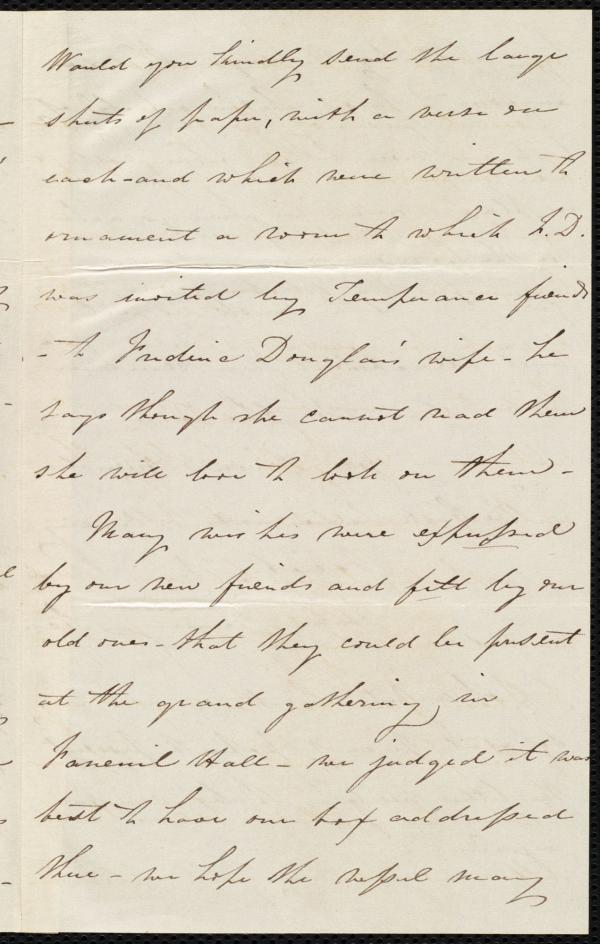 Would you kindly send the large
sheets of paper, with a verse on
each - and which were written to
ornament a room to which F.D.
was invited by Temperance friends
- to Frederic Douglas's wife - he
says though she cannot read them
she will love to look on them -
Many wishes were expressed
by our new friends and felt by our
old ones - that they could be present
at the grand gathering in
Faneuil Hall - we judged it was
best to have our box addressed
there - we hope the vessel may